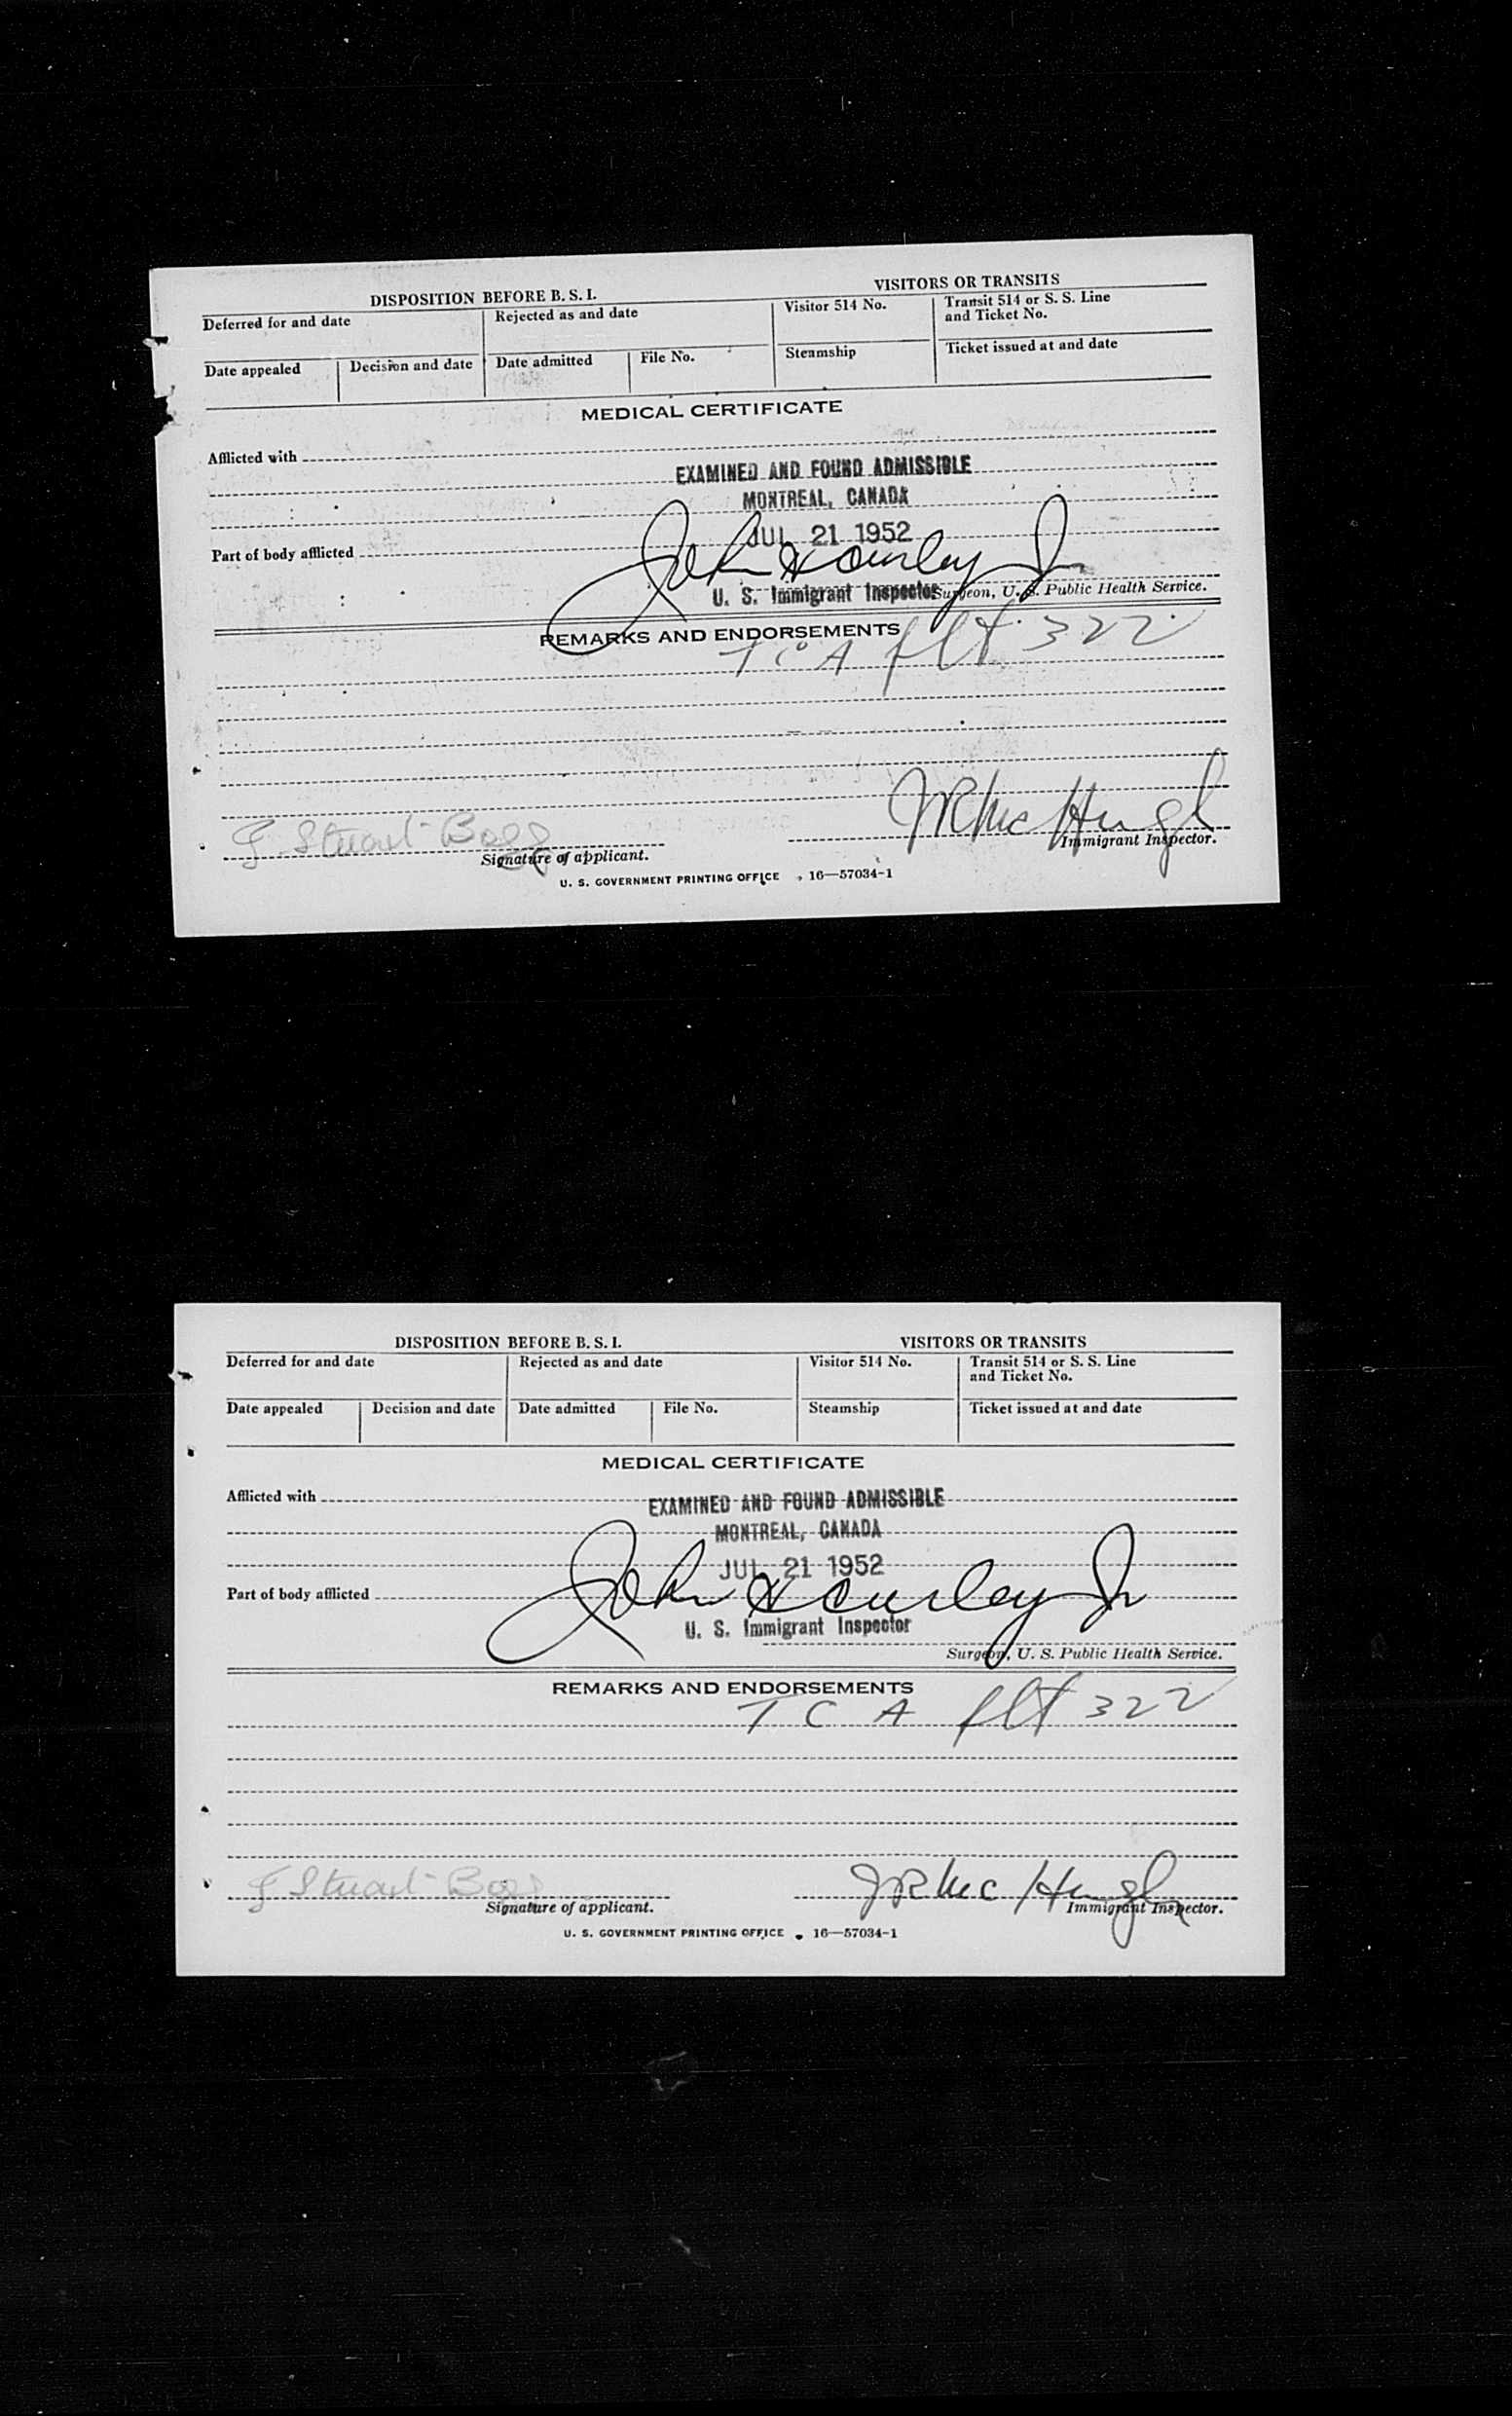 DISPOSITION BEFORE B. S. I.
VISITORS OR TRANSITS
Deferred for and date
Rejected as and date
Visitor 514 No.
Transit 514 or S. S. Line
and Ticket No.
Date appealed
Decision and date
Date admitted
File No.
Steamship
Ticket issued at and date
MEDICAL CERTIFICATE
Afflicted with
EXAMINED AND FOUND ADMISSIBLE
MONTREAL, CANADA
JUL 21 1952
Part of body afflicted
John Jr
U. S. Immigrant Inspector
Surgeon, U. S. Public Health Service.
REMARKS AND ENDORSEMENTS
T C A flt 322
Stuart
J R McHugh
Signature of applicant.
Immigrant Inspector.
U. S. GOVERNMENT PRINTING OFFICE 16—57034-1
DISPOSITION BEFORE B. S. I.
VISITORS OR TRANSITS
Deferred for and date
Rejected as and date
Visitor 514 No.
Transit 514 or S. S. Line
and Ticket No.
Date appealed
Decision and date
Date admitted
File No.
Steamship
Ticket issued at and date
MEDICAL CERTIFICATE
Afflicted with
EXAMINED AND FOUND ADMISSIBLE
MONTREAL, CANADA
JUL 21 1952
Part of body afflicted
John Jr
U. S. Immigrant Inspector
Surgeon, U. S. Public Health Service.
REMARKS AND ENDORSEMENTS
T C A flt 322
Stuart
J R McHugh
Signature of applicant.
Immigrant Inspector.
U. S. GOVERNMENT PRINTING OFFICE 16—57034-1